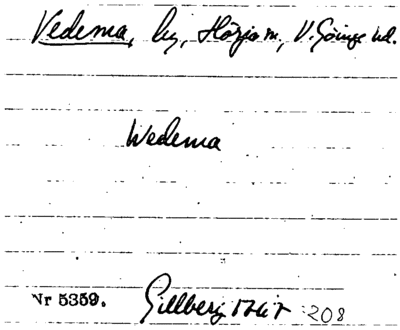 Vedema, by, Hörja sn, V. Göinge hd.
Wedema
Nr 5359. Gillberg 208